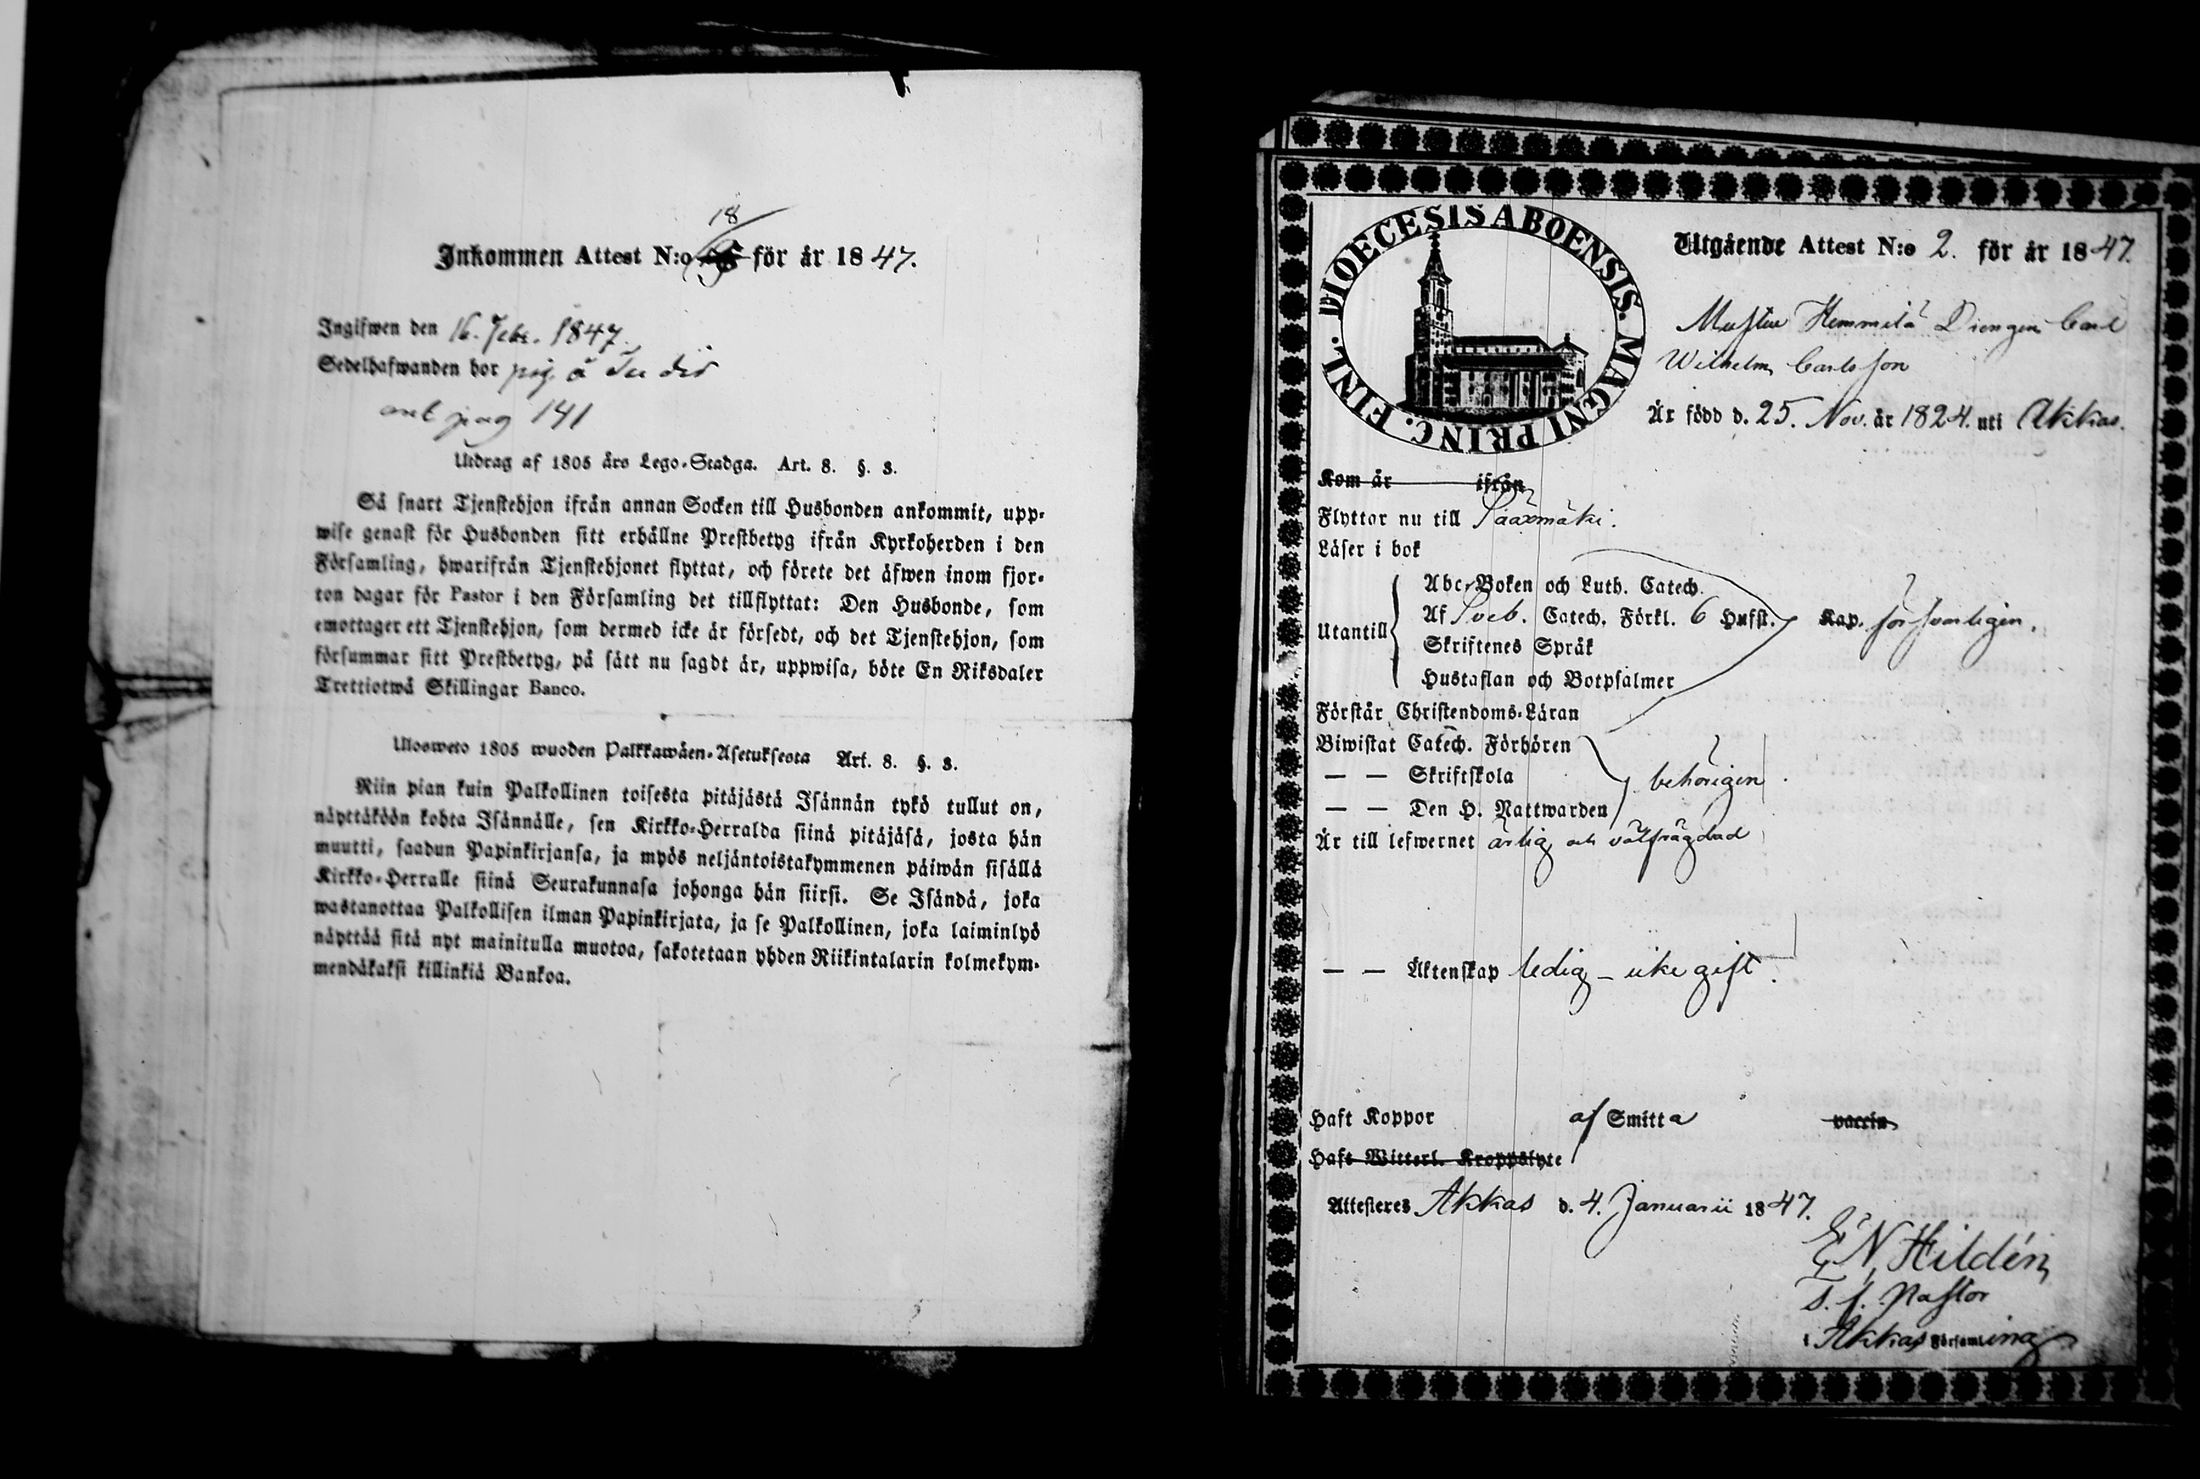 18
Inkommen Attest N:o för år 1847.
Ingifwen den 16. Febr. 1847.
Sedelhafwanden bor pig. å
ant pag 141
Utdrag af 1805 års Lego-Stadga. Art. 8. §. 3.
Så snart Tjenstehjon ifrån annan Socken till Husbonden ankommit, upp-
wise genast för Husbonden sitt erhållne Prestbetyg ifrån Kyrkoherden i den
Församling, hwarifrån Tjenstehjonet flyttat, och förete det äfwen inom fjor-
ton dagar för Pastor i den Församling det tillflyttat: Den Husbonde, som
emottager ett Tjenstehjon, som dermed icke är försedt, och det Tjenstehjon, som
försummar sitt Prestbetyg, på sätt nu sagdt är, uppwisa, böte En Riksdaler
Trettiotwå Skillingar Banco.
Ulosweto 1805 wuoden Palkkawäen-Asetuksesta Art. 8. §. 3.
Niin pian kuin Palkollinen toisesta pitäjästä Isännän tykö tullut on,
näyttäköön kohta Isännälle, sen Kirkko-Herralda siinä pitäjäsä, josta hän
muutti, saadun Papinkirjansa, ja myös neljäntoistakymmenen päiwän sisällä
Kirkko-Herralle siinä Seurakunnasa johonga hän siirsi. Se Isändä, joka
wastanottaa Palkollisen ilman Papinkirjata, ja se Palkollinen, joka laiminlyö
näyttää sitä nyt mainitulla muotoa, sakotetaan yhden Riikintalarin kolmekym-
mendäkaksi killinkiä Bankoa.
DIOECESIS ABOENSIS. MAGNI PRINC. FINL.
Utgående Attest N:o 2. för år 1847.
Hemmilä Drengen Carl
Wilhelm Carlsson
Är född d. 25. Nov. år 1824. uti Akkas.
Kom år ifrån
Flyttar nu till Sääxmäki.
Läser i bok
Abc-Boken och Luth. Catech.
Utantill Af Sveb. Catech. Förkl. 6 Hufst. Kap. försvarligen.
Skriftenes Språk
Hustaflan och Botpsalmer
Förstår Christendoms-Läran
Biwistat Catech. Förhören
— — Skriftskola behörigen
— — Den H. Nattwarden
Är till lefwernet ärlig och välfrägdad
— — Äktenskap ledig – icke gift.
Haft Koppor af Smitta vaccin
Haft Witterl. Kroppslyte
Attesteres Akkas d. 4. Januarii 1847.
E N Hildén
T. f. Pastor
i Akkas Församling